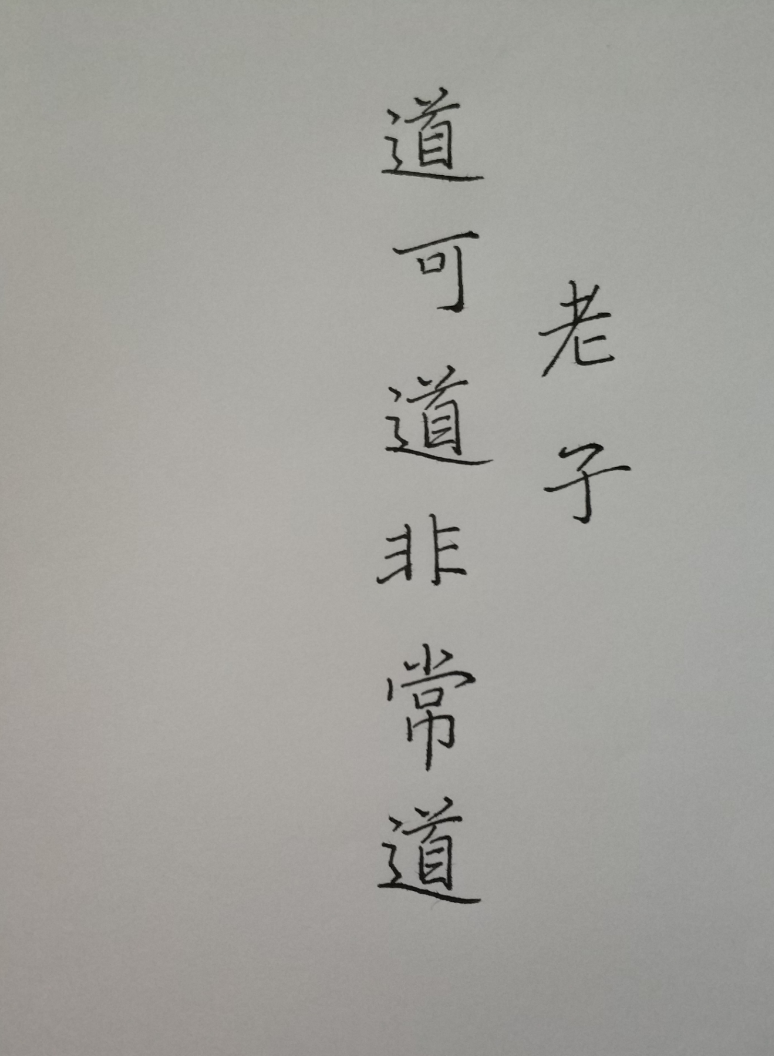 老子
道可道非常道